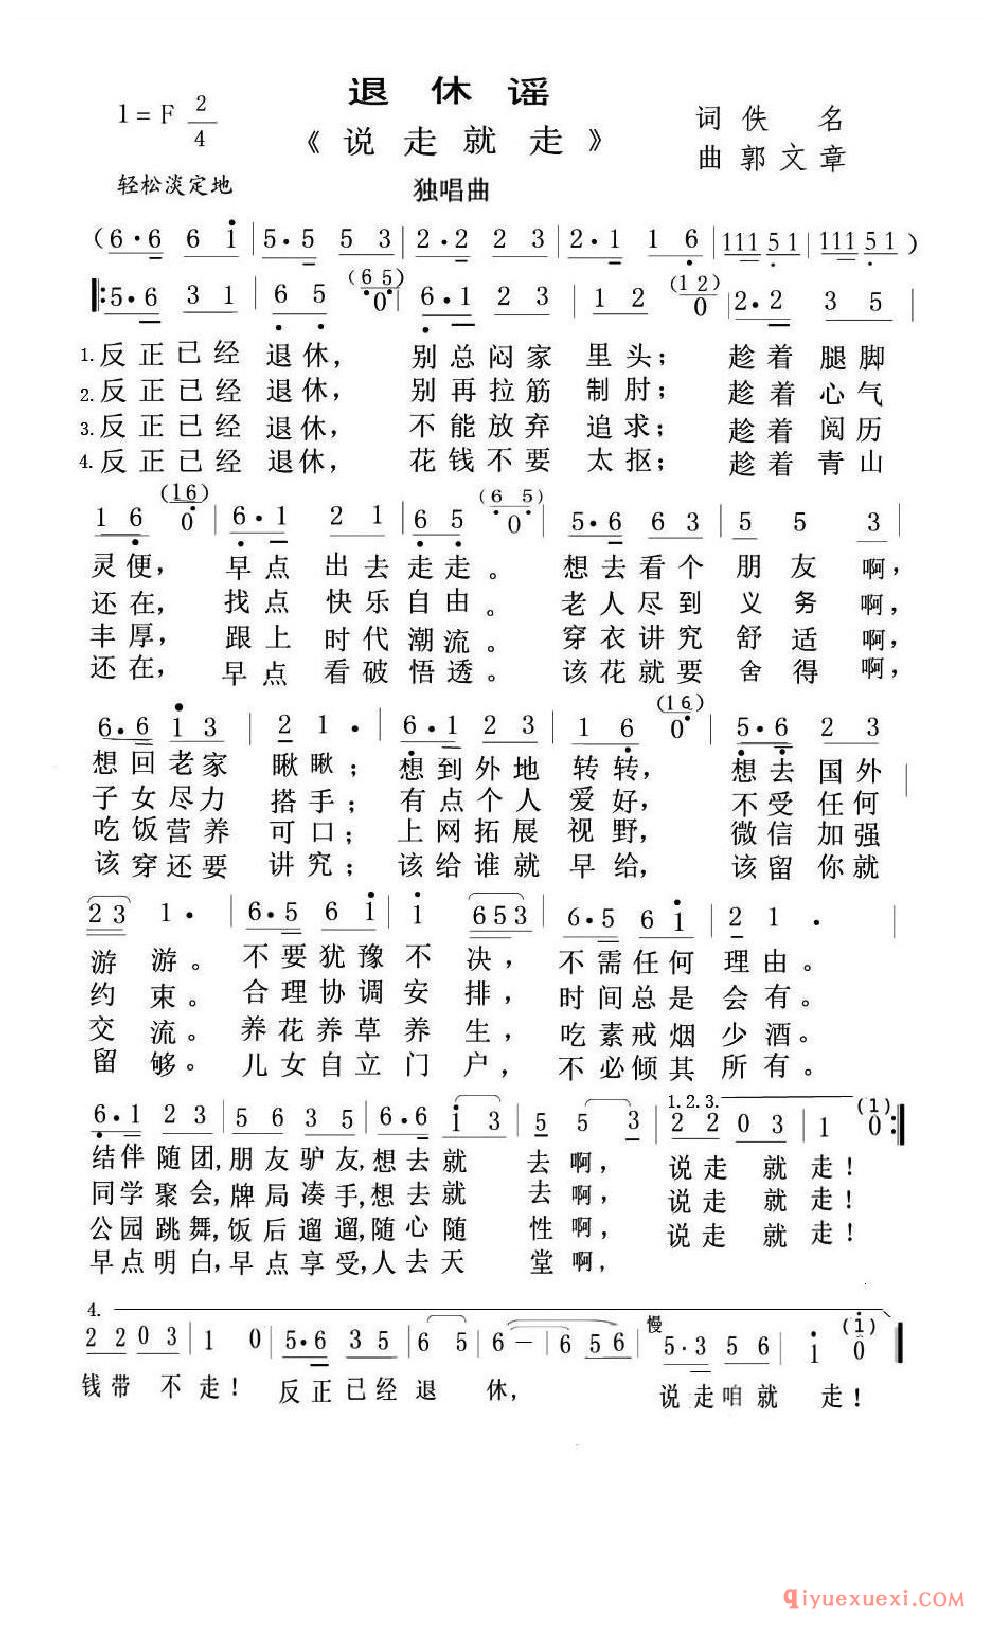 退休谣
1=F 2/4
《说走就走》
词 佚名
曲 郭文章
轻松淡定地
独唱曲
(6·6 6 i | 5·5 5 3 | 2·2 2 3 | 2·1 1 6 | 111 51 | 111 51 )
‖: 5·6 3 1 | 6 5 (65) 0 | 6·1 2 3 | 1 2 (12) 0 | 2·2 3 5 |
1.反正已经 退休, 别总闷家 里头; 趁着腿脚
2.反正已经 退休, 别再拉筋 制肘; 趁着心气
3.反正已经 退休, 不能放弃 追求; 趁着阅历
4.反正已经 退休, 花钱不要 太抠; 趁着青山
1 6 (16) 0 | 6·1 2 1 | 6 5 (65) 0 | 5·6 6 3 | 5 5 3 |
灵便, 早点 出去走走。 想去看个 朋友 啊,
还在, 找点 快乐自由。 老人尽到 义务 啊,
丰厚, 跟上 时代潮流。 穿衣讲究 舒适 啊,
还在, 早点 看破悟透。 该花就要 舍得 啊,
6·6 i 3 | 2 1· | 6·1 2 3 | 1 6 (16) 0 | 5·6 2 3 |
想回老家 瞅瞅; 想到外地 转转, 想去国外
子女尽力 搭手; 有点个人 爱好, 不受任何
吃饭营养 可口; 上网拓展 视野, 微信加强
该穿还要 讲究; 该给谁就 早给, 该留你就
23 1· | 6·5 6 i | i 653 | 6·5 6 i | 2 1· |
游 游。 不要犹豫不 决, 不需任何 理由。
约 束。 合理协调安 排, 时间总是 会有。
交 流。 养花养草养 生, 吃素戒烟 少酒。
留 够。 儿女自立门 户, 不必倾其 所有。
1.2.3.
6·1 2 3 | 5 6 3 5 | 6·6 i 3 | 5 5 3 | 2 2 0 3 | 1 (1) 0 :‖
结伴随团,朋友驴友,想去就 去啊, 说走 就 走!
同学聚会,牌局凑手,想去就 去啊, 说走 就 走!
公园跳舞,饭后遛遛,随心随 性啊, 说走 就 走!
早点明白,早点享受,人去天 堂啊,
4.
慢
2 2 0 3 | 1 0 | 5·6 3 5 | 6 5 | 6 - | 6 5 6 | 5·3 5 6 | i (i) 0 ‖
钱带 不走! 反正已经 退 休, 说走咱就 走!
qiyuexuexi.com